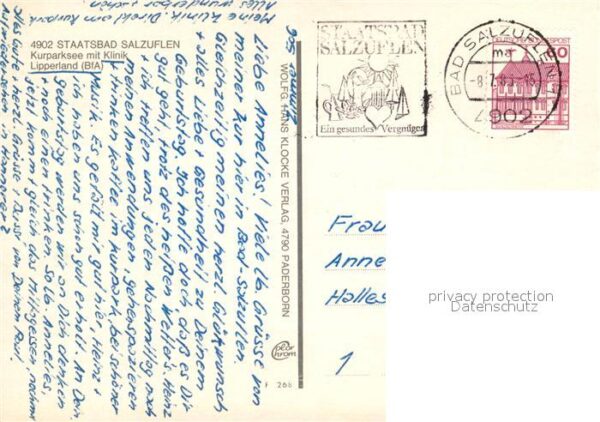 4902 STAATSBAD SALZUFLEN
Kurparksee mit Klinik
Lipperland (BfA)
Meine Klinik. Direkt am Kurpark
alles wunderbar schön
Liebe Annelies! Viele lb. Grüsse von
meiner Kur hier in Bad-Salzuflen.
Gleichzeitig meinen herzl. Glückwunsch
+ alles Liebe + Gesundheit zu Deinem
Geburtstag. Ich hoffe doch, daß es Dir
gut geht, trotz des heißen Wetters. Heinz
+ ich treffen uns jeden Nachmittag nach
den Anwendungen, gehen spazieren
trinken Kaffee im Kurpark, bei schöner
Musik. Es gefällt mir gut hier, Heinz +
ich haben uns schon gut erholt. An Dein
Geburtstag werden wir an Dich denken
+ noch einen trinken. So lb. Annelies,
jetzt kommt gleich das Mittagessen
alles Gute + herzl. Grüsse + Bussi von Deiner
Auf Wiedersehen in Hannover
WOLFG. HANS KLOCKE VERLAG, 4790 PADERBORN
Color chrom
f 266
STAATSBAD
SALZUFLEN
Ein gesundes Vergnügen
BAD SALZUFLEN 1
ma
4902
DEUTSCHE BUNDESPOST
60
Frau
Anne
Halles
1
privacy protection
Datenschutz